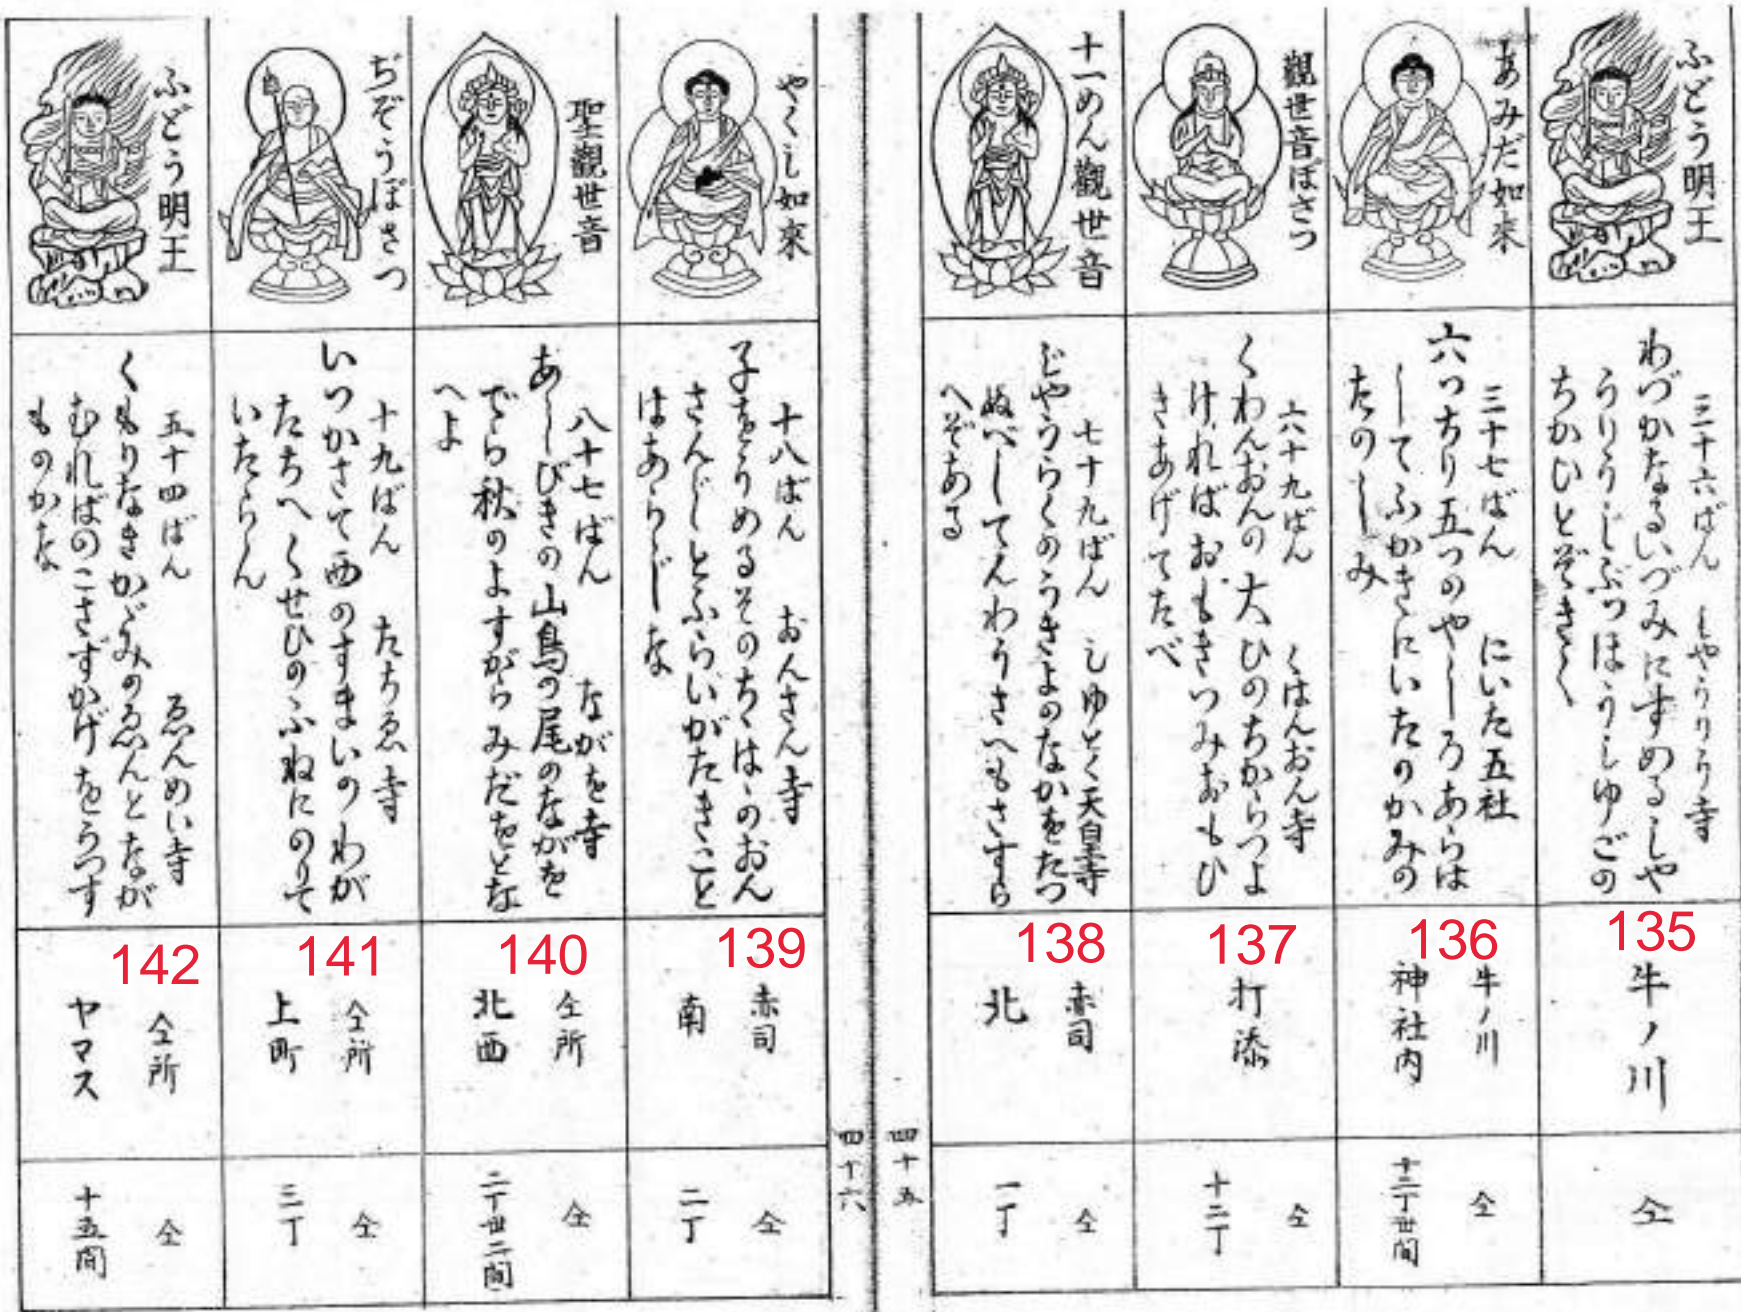 ふどう明王
三十六ばん しやうりう寺
わづかなるいづみにすめるしや
うりうハぶつほうしゆごの
ちかひとぞきく
135
牛ノ川
仝
あみだ如來
三十七ばん にいた五社
六つちり五つのやしろあらは
してふかきにいたのかみの
たのしみ
136
牛ノ川
神社内
仝
十二丁廿間
觀世音ぼさつ
六十九ばん くはんおん寺
くわんおんの大ひのちからつよ
ければおもきつみおもひ
きあげてたべ
137
打添
仝
十二丁
十一めん觀世音
七十九ばん しゆとく天皇寺
じやうらくのうきよのなかをたつ
ぬべしてんわうさへもさすら
へぞある
138
赤司
北
仝
一丁
四十五
やくし如來
十八ばん おんさん寺
子をうめるそのちゝはゝのおん
さんじしとふらいがたきこと
はあらじな
139
赤司
南
仝
二丁
聖觀世音
八十七ばん ながを寺
あしびきの山鳥の尾のながを
でら秋のよすがらみだをとな
へよ
140
仝所
北西
仝
二丁廿二間
ぢぞうぼさつ
十九ばん たちゑ寺
いつかさて西のすまいのわが
たちへくせひのふねにのりて
いたらん
141
仝所
上町
仝
三丁
ふどう明王
五十四ばん ゑんめい寺
くもりなきかゞみのゑんとなが
むればのこさずかげをうつす
ものかな
142
仝所
ヤマス
仝
十五間
四十六